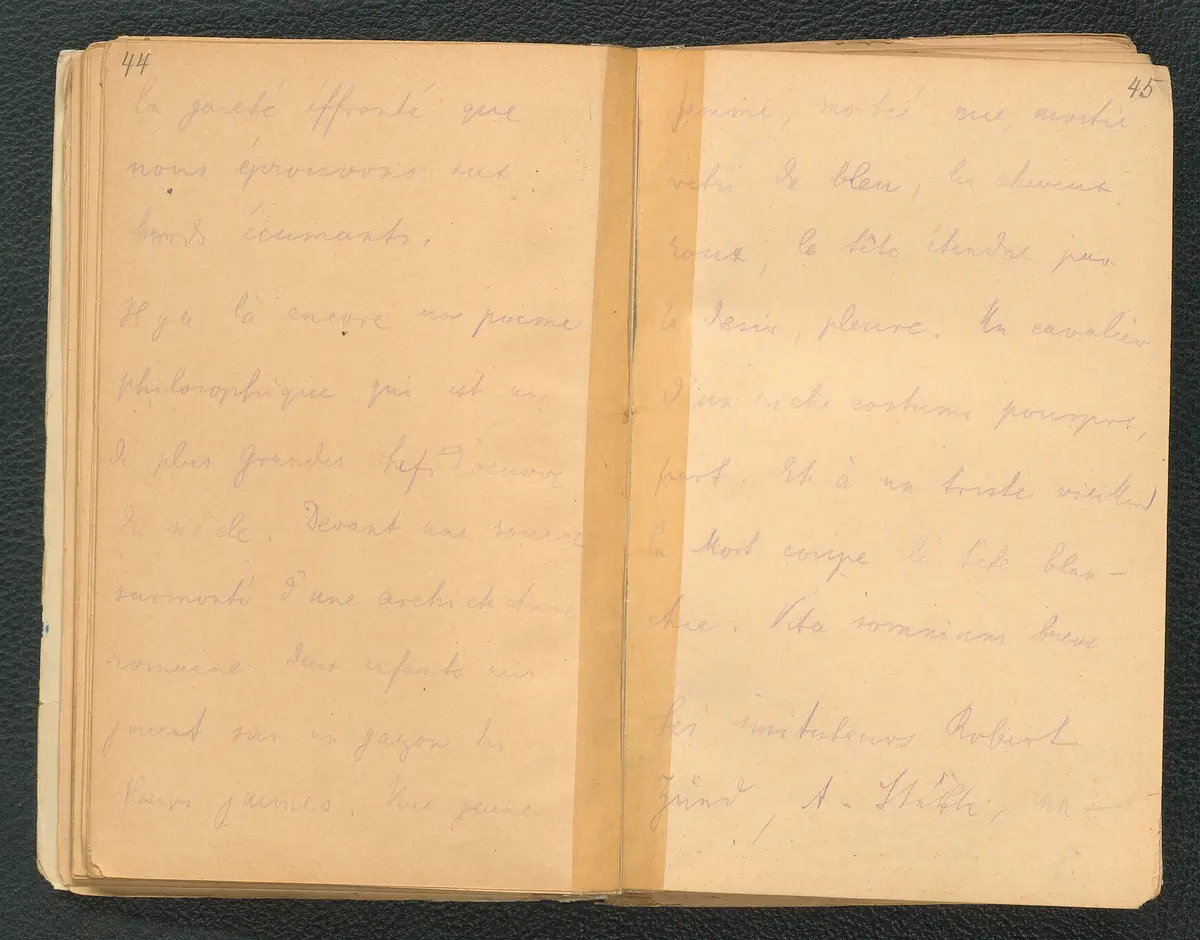 44
la gaieté éffronté que
nous éprouvons aux
bords écumants.
Il y a là encore un poeme
philosophique qui est un
de plus grandes chefs d'oeuvre
du siècle. Devant une source
surmonté d'une architecture
romaine deux enfants
jouent sur un gazon de
fleurs jaunes. Une jeune
45
femme, moitié nue, moitié
vetu de bleu, les cheveux
roux, la tête étendue par
le desir, pleure. Un cavalier
d'un riche costume pourpre,
part. Et à un triste vieillard
la Mort coupe la tête blan-
che. Vita somnium breve
Les imitateurs Robert
Zünd, A. Stäbli,